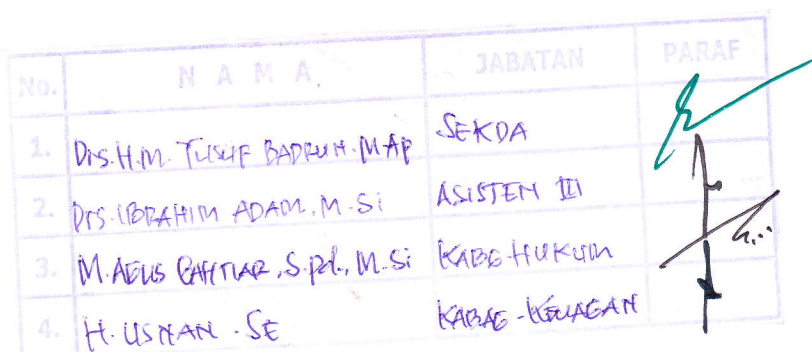 No. N A M A JABATAN PARAF
1. Drs. H.M. YUSUF BADRUN. M.AP SEKDA
2. Drs. IBRAHIM ADAM. M.Si ASISTEN III
3. M. AGUS BAHTIAR, S.Pd., M.Si KABG HUKUM
4. H. USMAN . SE KABAG -